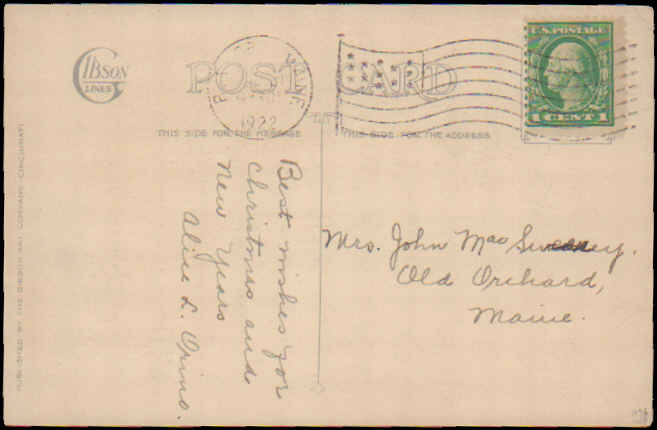 GIBSON
LINES
POST CARD
MAINE
1922
U.S. POSTAGE
1 CENT 1
THIS SIDE FOR THE MESSAGE
THIS SIDE FOR THE ADDRESS
Best wishes for
Christmas and
New Years
Alice L.
Mrs. John Mac Sweeney.
Old Orchard,
Maine.
PUBLISHED BY THE GIBSON ART COMPANY, CINCINNATI